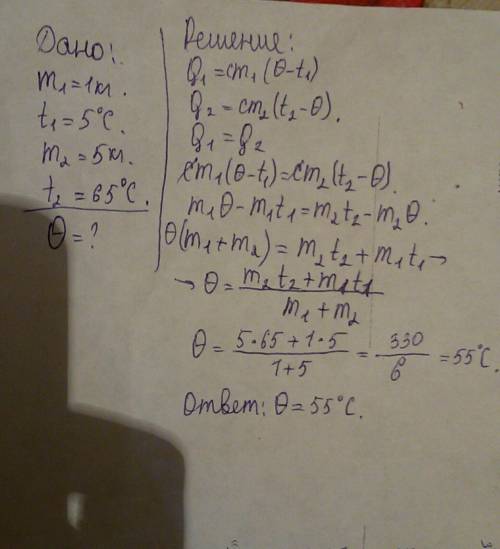 Дано:
m₁=1кг.
t₁=5°C.
m₂=5кг.
t₂=65°C.
θ=?
Решение:
Q₁=cm₁(θ-t₁)
Q₂=cm₂(t₂-θ).
Q₁=Q₂
cm₁(θ-t₁)=cm₂(t₂-θ).
m₁θ-m₁t₁=m₂t₂-m₂θ.
θ(m₁+m₂)=m₂t₂+m₁t₁→
→θ=(m₂t₂+m₁t₁)/(m₁+m₂)
θ=(5·65+1·5)/(1+5)=330/6=55°C.
Ответ: θ=55°C.